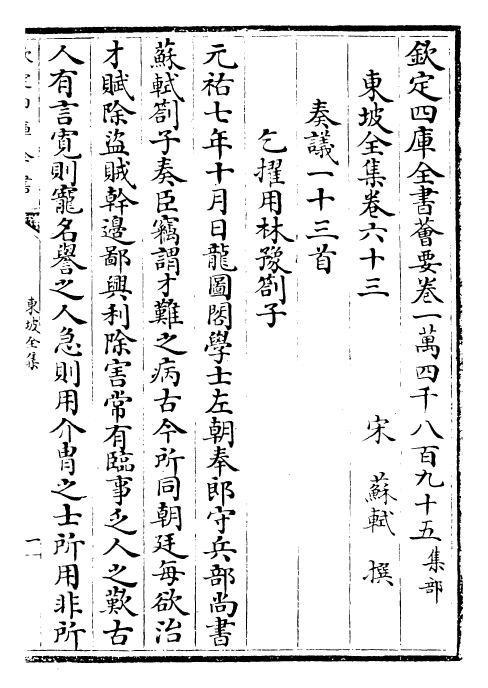 欽定四庫全書薈要卷一萬四千八百九十五集部
東坡全集卷六十三
宋 蘇軾 撰
奏議一十三首
乞擢用林豫劄子
元祐七年十月日龍圖閣學士左朝奉郎守兵部尚書
蘇軾劄子奏臣竊謂才難之病古今所同朝廷每欲治
才賦除盜賊幹邊鄙興利除害常有臨事乏人之歎古
人有言寛則寵名譽之人急則用介胄之士所用非所
欽定四庫全書
東坡全集
一